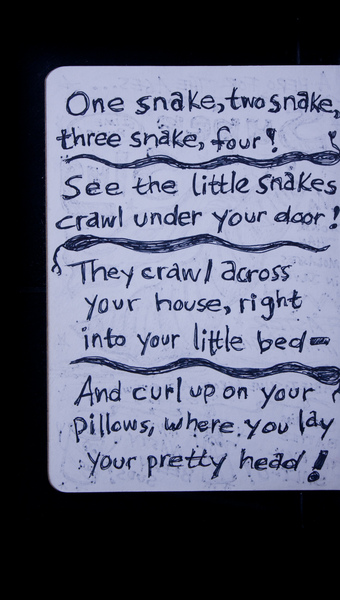 One snake, two snake,
three snake, four!
See the little snakes
crawl under your door!
They crawl across
your house, right
into your little bed-
And curl up on your
pillows, where you lay
your pretty head!